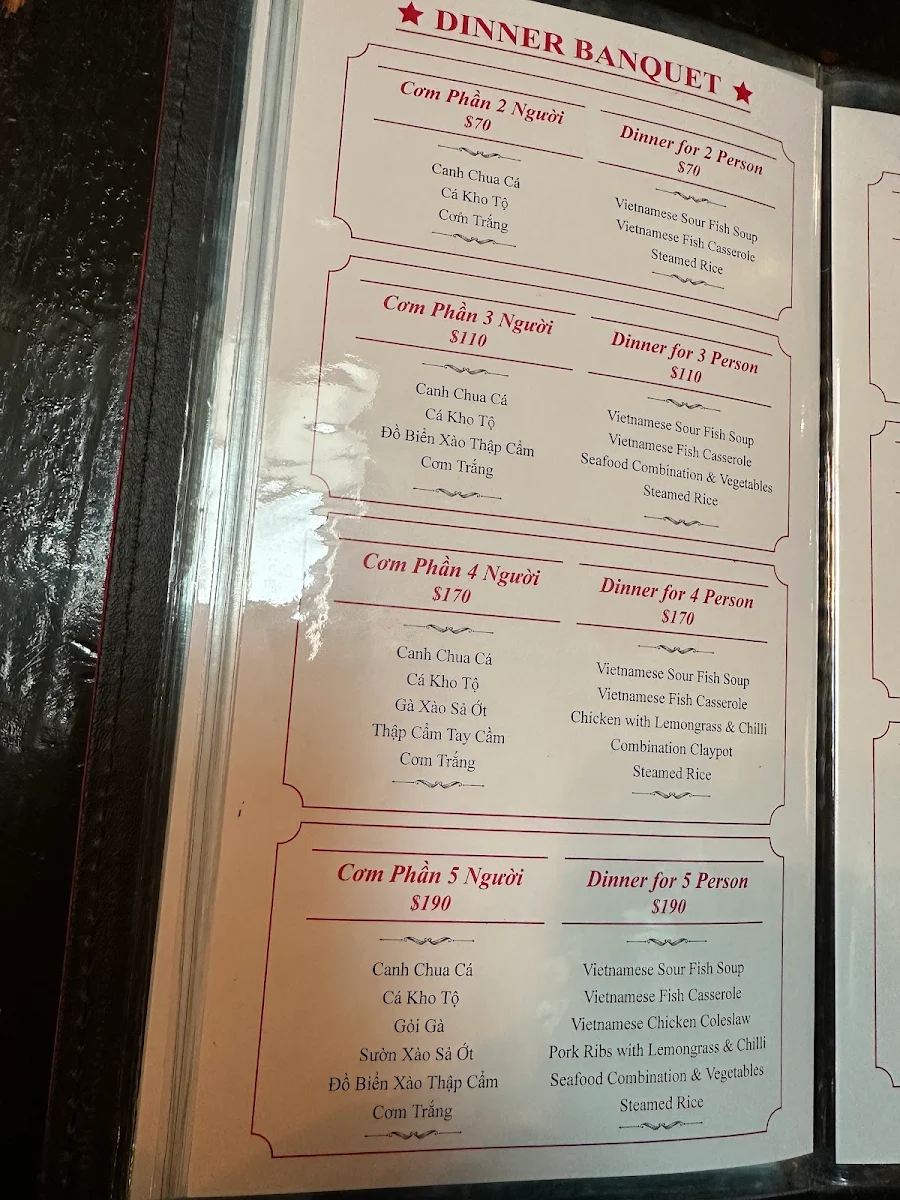 ★ DINNER BANQUET ★
Cơm Phần 2 Người
$70
Canh Chua Cá
Cá Kho Tộ
Cơm Trắng
Dinner for 2 Person
$70
Vietnamese Sour Fish Soup
Vietnamese Fish Casserole
Steamed Rice
Cơm Phần 3 Người
$110
Canh Chua Cá
Cá Kho Tộ
Đồ Biển Xào Thập Cẩm
Cơm Trắng
Dinner for 3 Person
$110
Vietnamese Sour Fish Soup
Vietnamese Fish Casserole
Seafood Combination & Vegetables
Steamed Rice
Cơm Phần 4 Người
$170
Canh Chua Cá
Cá Kho Tộ
Gà Xào Sả Ớt
Thập Cẩm Tay Cầm
Cơm Trắng
Dinner for 4 Person
$170
Vietnamese Sour Fish Soup
Vietnamese Fish Casserole
Chicken with Lemongrass & Chilli
Combination Claypot
Steamed Rice
Cơm Phần 5 Người
$190
Canh Chua Cá
Cá Kho Tộ
Gỏi Gà
Sườn Xào Sả Ớt
Đồ Biển Xào Thập Cẩm
Cơm Trắng
Dinner for 5 Person
$190
Vietnamese Sour Fish Soup
Vietnamese Fish Casserole
Vietnamese Chicken Coleslaw
Pork Ribs with Lemongrass & Chilli
Seafood Combination & Vegetables
Steamed Rice